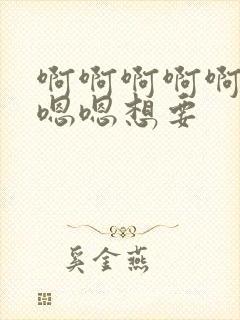 啊啊啊啊啊
嗯嗯想要
奚金燕